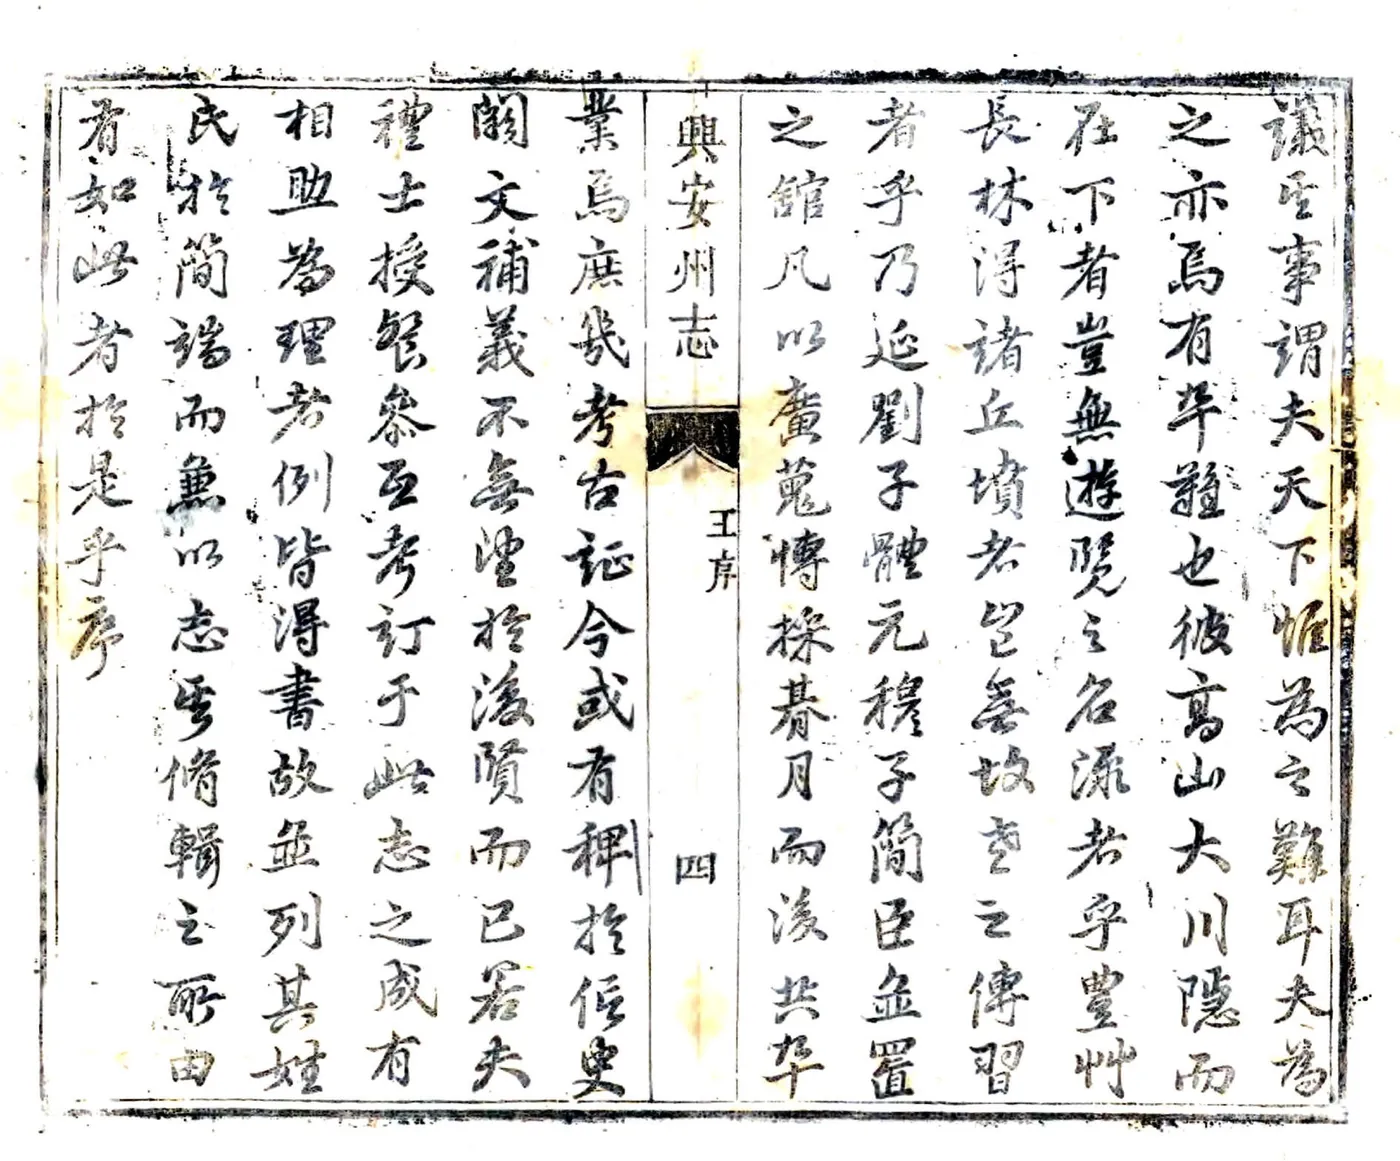 議其事謂夫天下惟為之難耳夫為
之亦焉有卒難也彼高山大川隱而
在下者豈無遊覽之名源者乎豊艸
長林得諸丘墳者豈無故老之傳習
者乎乃延劉子體元穆子簡臣並置
之館凡以廣蒐博採朞月而後共卒
興安州志
王序
四
業焉庶幾考古証今或有稗於信史
闕文補義不無望於後賢而已若夫
禮士授餐叅互考訂于此志之成有
相助為理者例皆得書故並列其姓
氏於簡端而兼以志其脩輯之所由
有如此者於是乎序